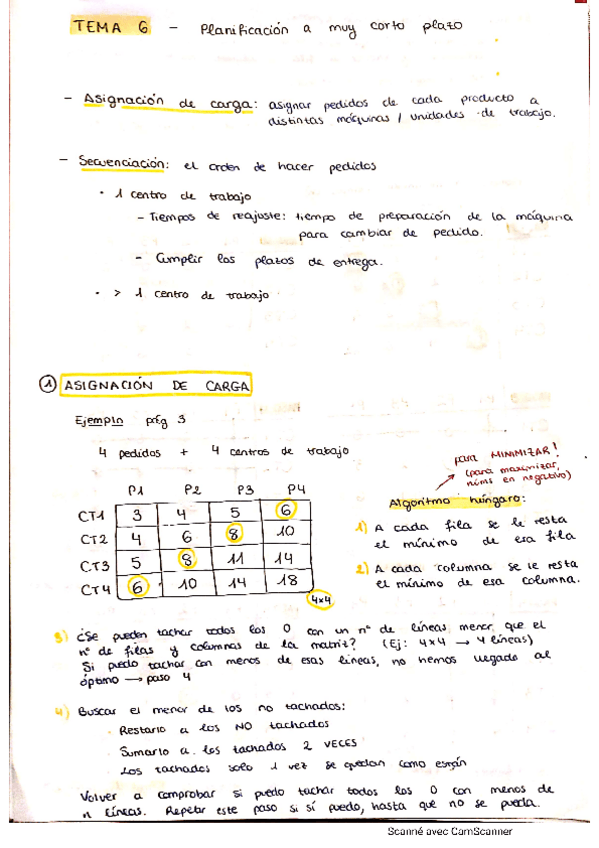 TEMA 6 - Planificación a muy corto plazo
- Asignación de carga: asignar pedidos de cada producto a
distintas máquinas / unidades de trabajo.
- Secuenciación: el orden de hacer pedidos
· 1 centro de trabajo
- Tiempos de reajuste: tiempo de preparación de la máquina
para cambiar de pedido.
- Cumplir los plazos de entrega.
· > 1 centro de trabajo
① ASIGNACIÓN DE CARGA
Ejemplo pág 3
4 pedidos + 4 centros de trabajo
para MINIMIZAR!
(para maximizar,
núms en negativo)
Algoritmo húngaro:
P1 P2 P3 P4
CT1 3 4 5 6
CT2 4 6 8 10
CT3 5 8 11 14
CT4 6 10 14 18
4x4
1) A cada fila se le resta
el mínimo de esa fila
2) A cada columna se le resta
el mínimo de esa columna.
3) ¿Se pueden tachar todos los 0 con un nº de líneas menor que el
nº de filas y columnas de la matriz? (Ej: 4x4 → 4 líneas)
Si puedo tachar con menos de esas líneas, no hemos llegado al
óptimo → paso 4
4) Buscar el menor de los no tachados:
· Restarlo a los NO tachados
· Sumarlo a los tachados 2 VECES
· Los tachados solo 1 vez se quedan como están
Volver a comprobar si puedo tachar todos los 0 con menos de
n líneas. Repetir este paso si sí puedo, hasta que no se pueda.
Scanné avec CamScanner